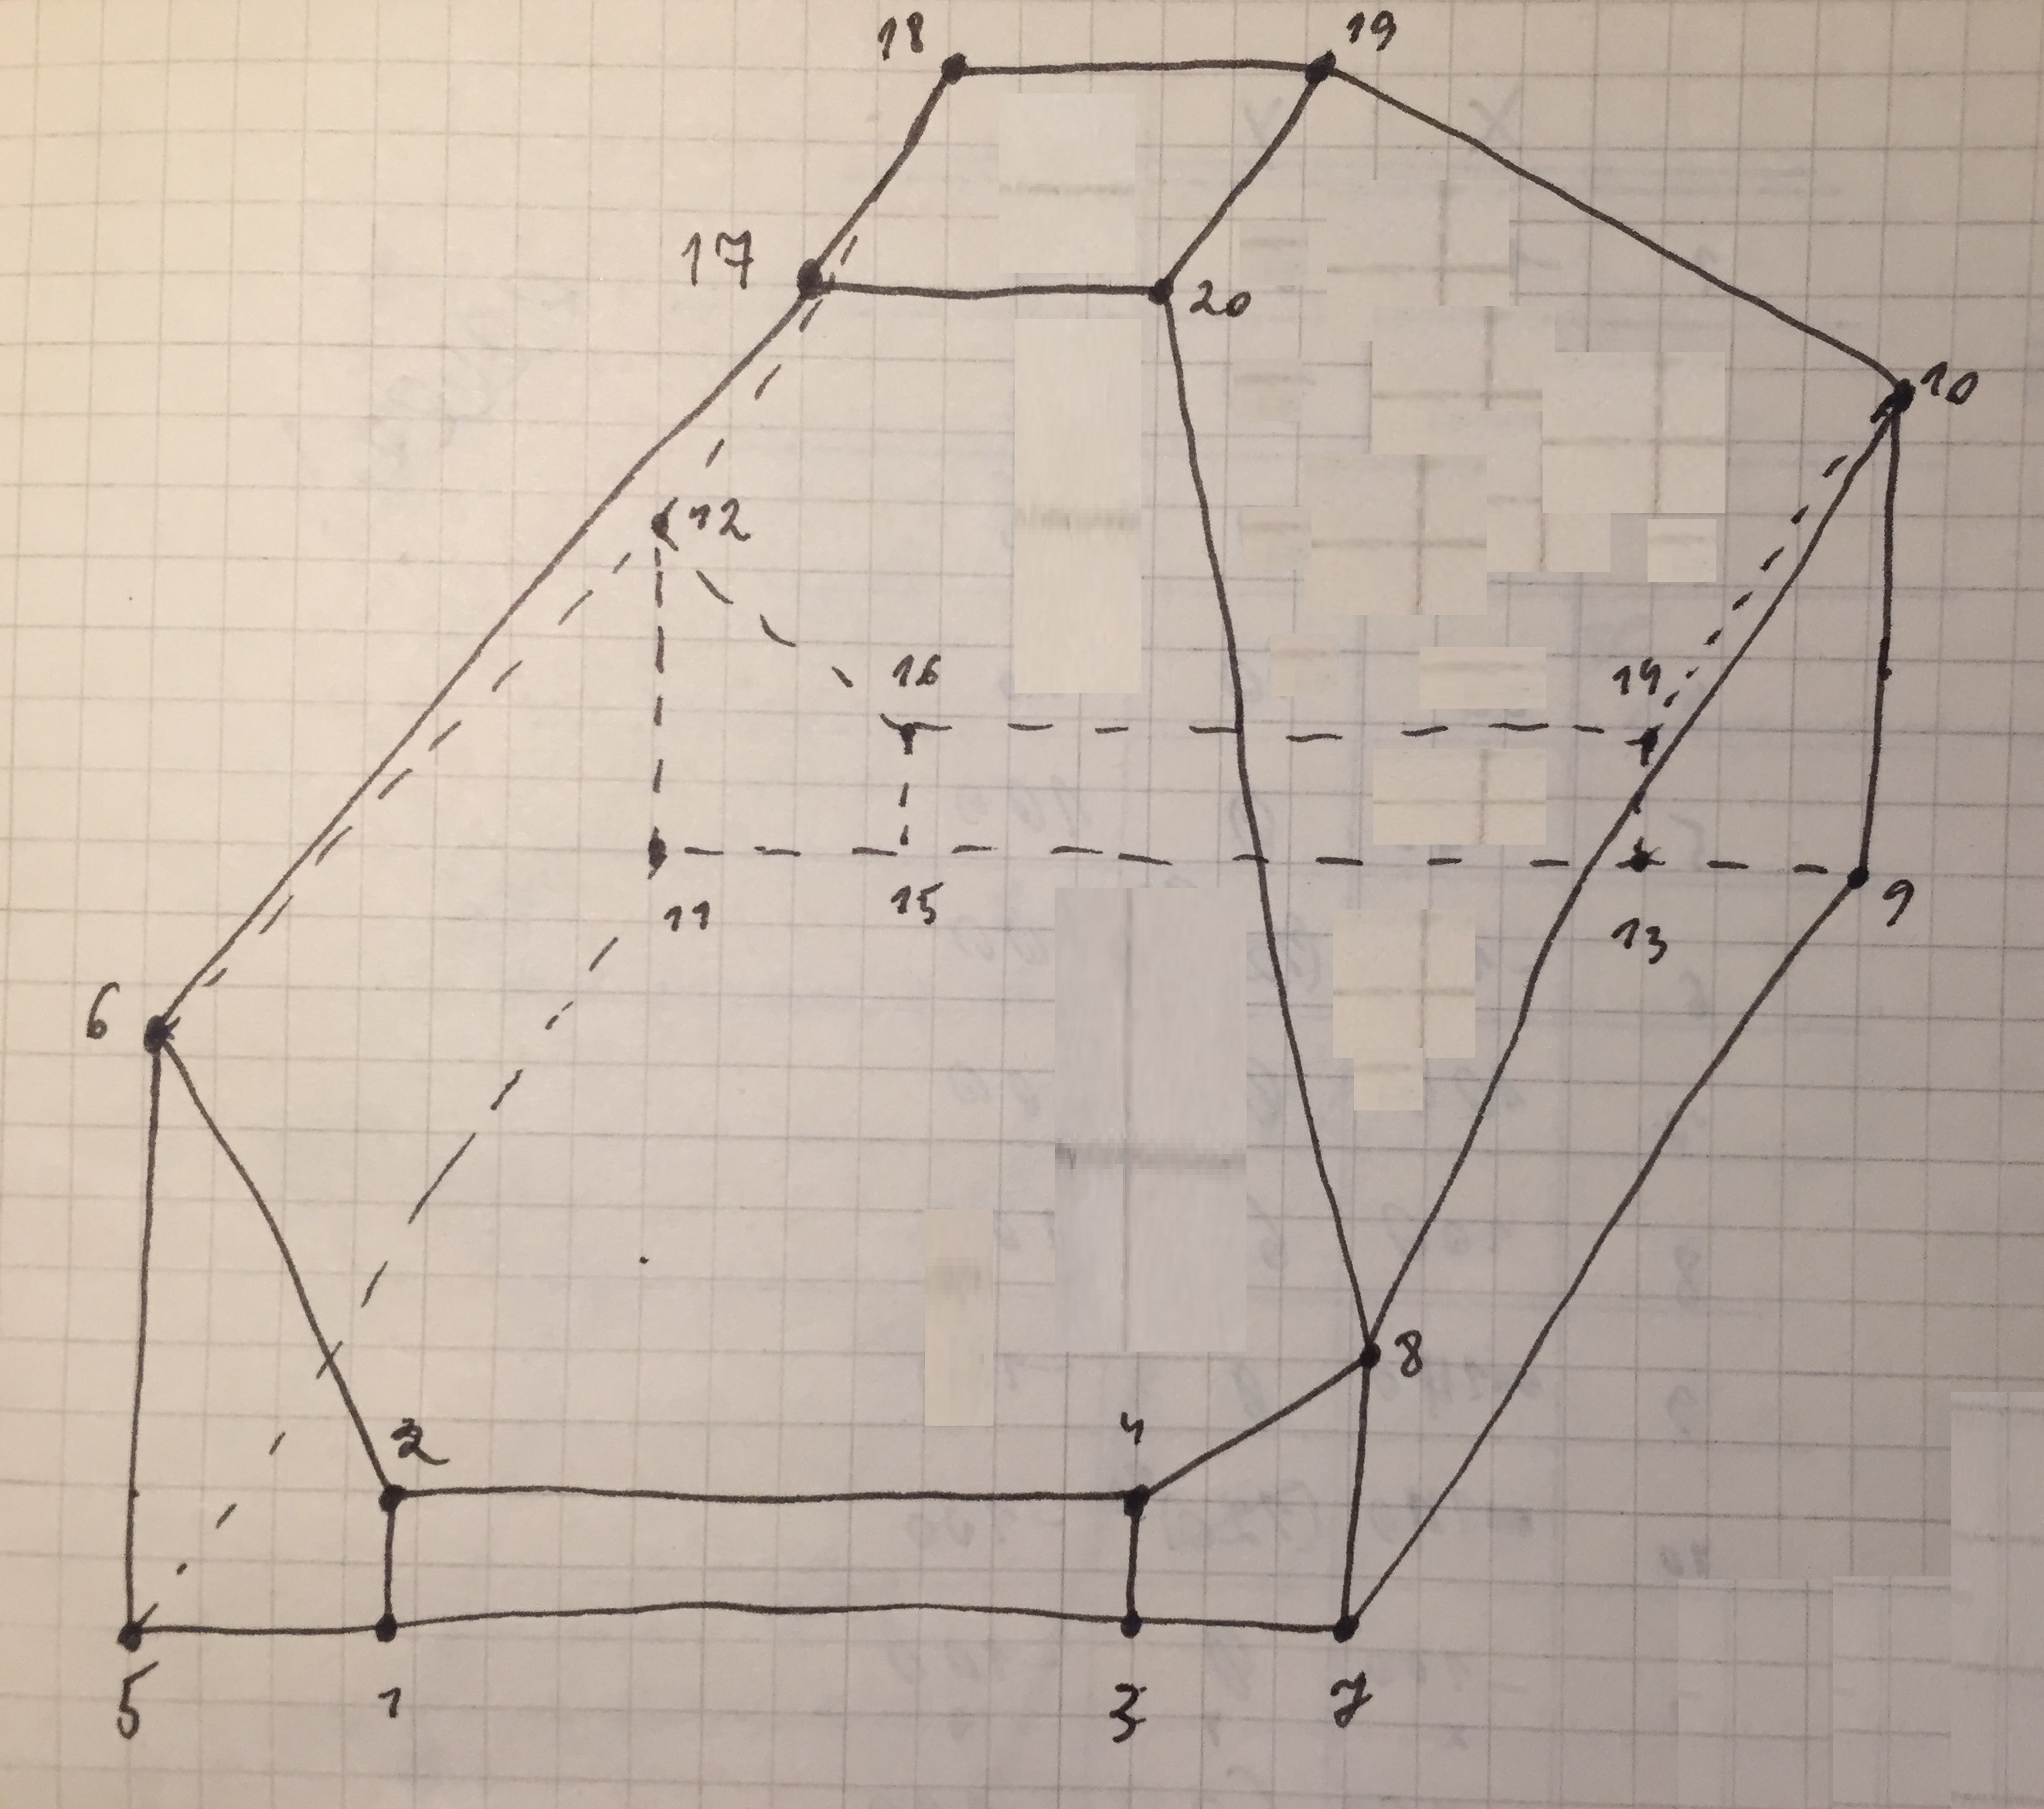 18
19
17
20
10
12
16
14
11
15
13
9
6
2
4
8
5
1
3
7